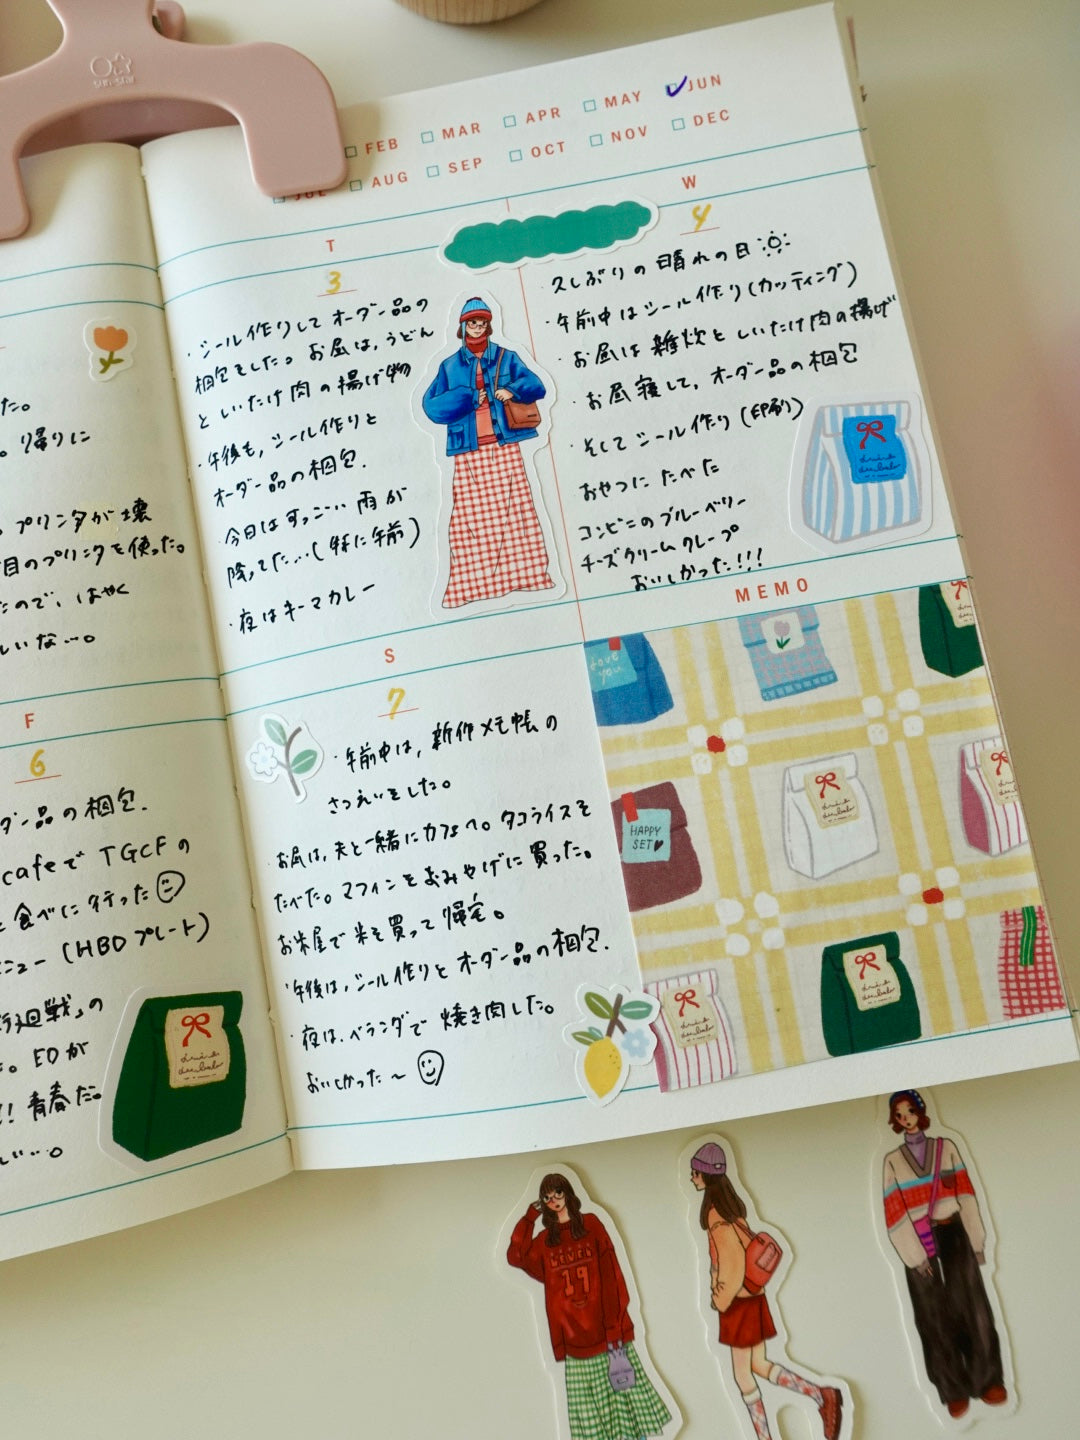 sun-star
FEB
MAR
APR
MAY
JUN
AUG
SEP
OCT
NOV
DEC
た。
。帰りに
。プリンタが壊
目のプリンタを使った。
たので、はやく
しいな…。
T
3
・シール作りしてオーダー品の
梱包をした。お昼は、うどん
としいたけ肉の揚げ物
・午後も、シール作りと
オーダー品の梱包.
・今日はすっごい雨が
降ってた…(特に午前)
・夜はキーマカレー
W
4
久しぶりの晴れの日
・午前中はシール作り(カッティング)
・お昼は雑炊としいたけ肉の揚げ
・お昼寝して、オーダー品の梱包
・そしてシール作り(印刷)
おやつにたべた
コンビニのブルーベリー
チーズクリームクレープ
おいしかった!!!
F
6
ダー品の梱包.
cafeでTGCFの
と食べに行った
ニュー(HBDプレート)
廻戦」の
た。EDが
! 青春だ。
い…。
S
7
・午前中は、新作メモ帳の
さつえいをした。
・お昼は、夫と一緒にカフェへ。タコライスを
たべた。マフィンをおみやげに買った。
お米屋で米を買って帰宅。
・午後は、シール作りとオーダー品の梱包.
・夜は、ベランダで焼き肉した。
おいしかった〜
MEMO
love
you
HAPPY
SET
19